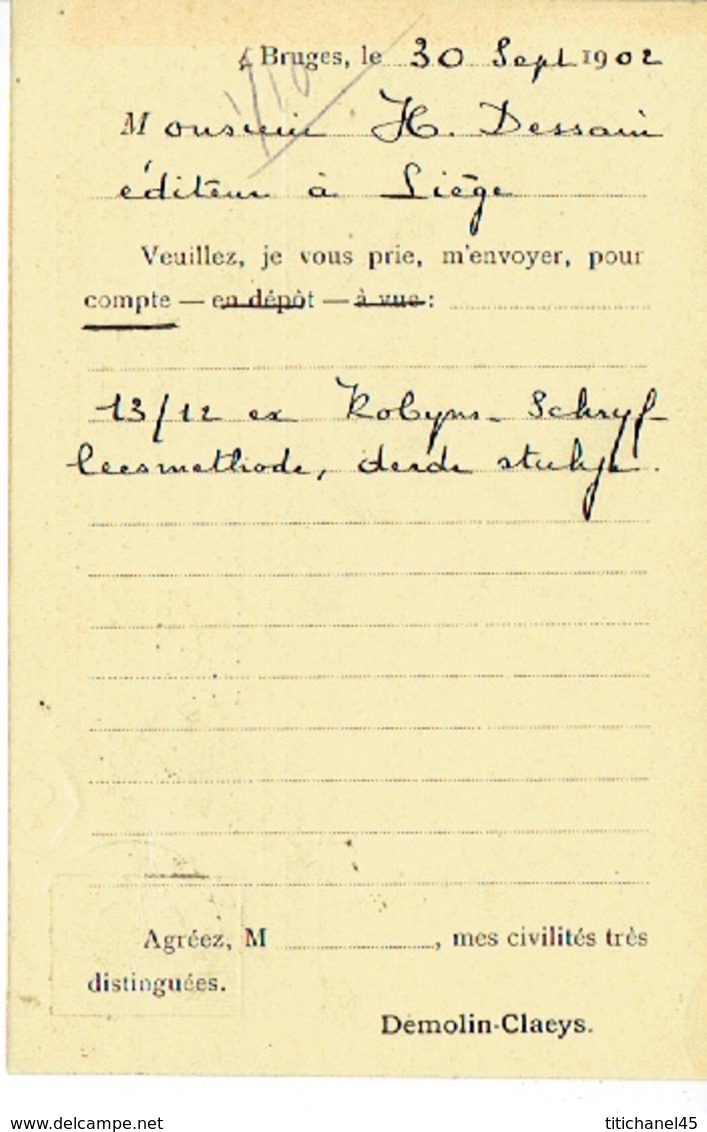 Bruges, le 30 Sept 1902
1/10
Monsieur H. Dessain
éditeur à Liège
Veuillez, je vous prie, m'envoyer, pour
compte — en dépôt — à vue :
13/12 ex Robyns - Schryf-
leesmethode, derde stukje.
Agréez, M , mes civilités très
distinguées.
Demolin-Claeys.
titichanel45